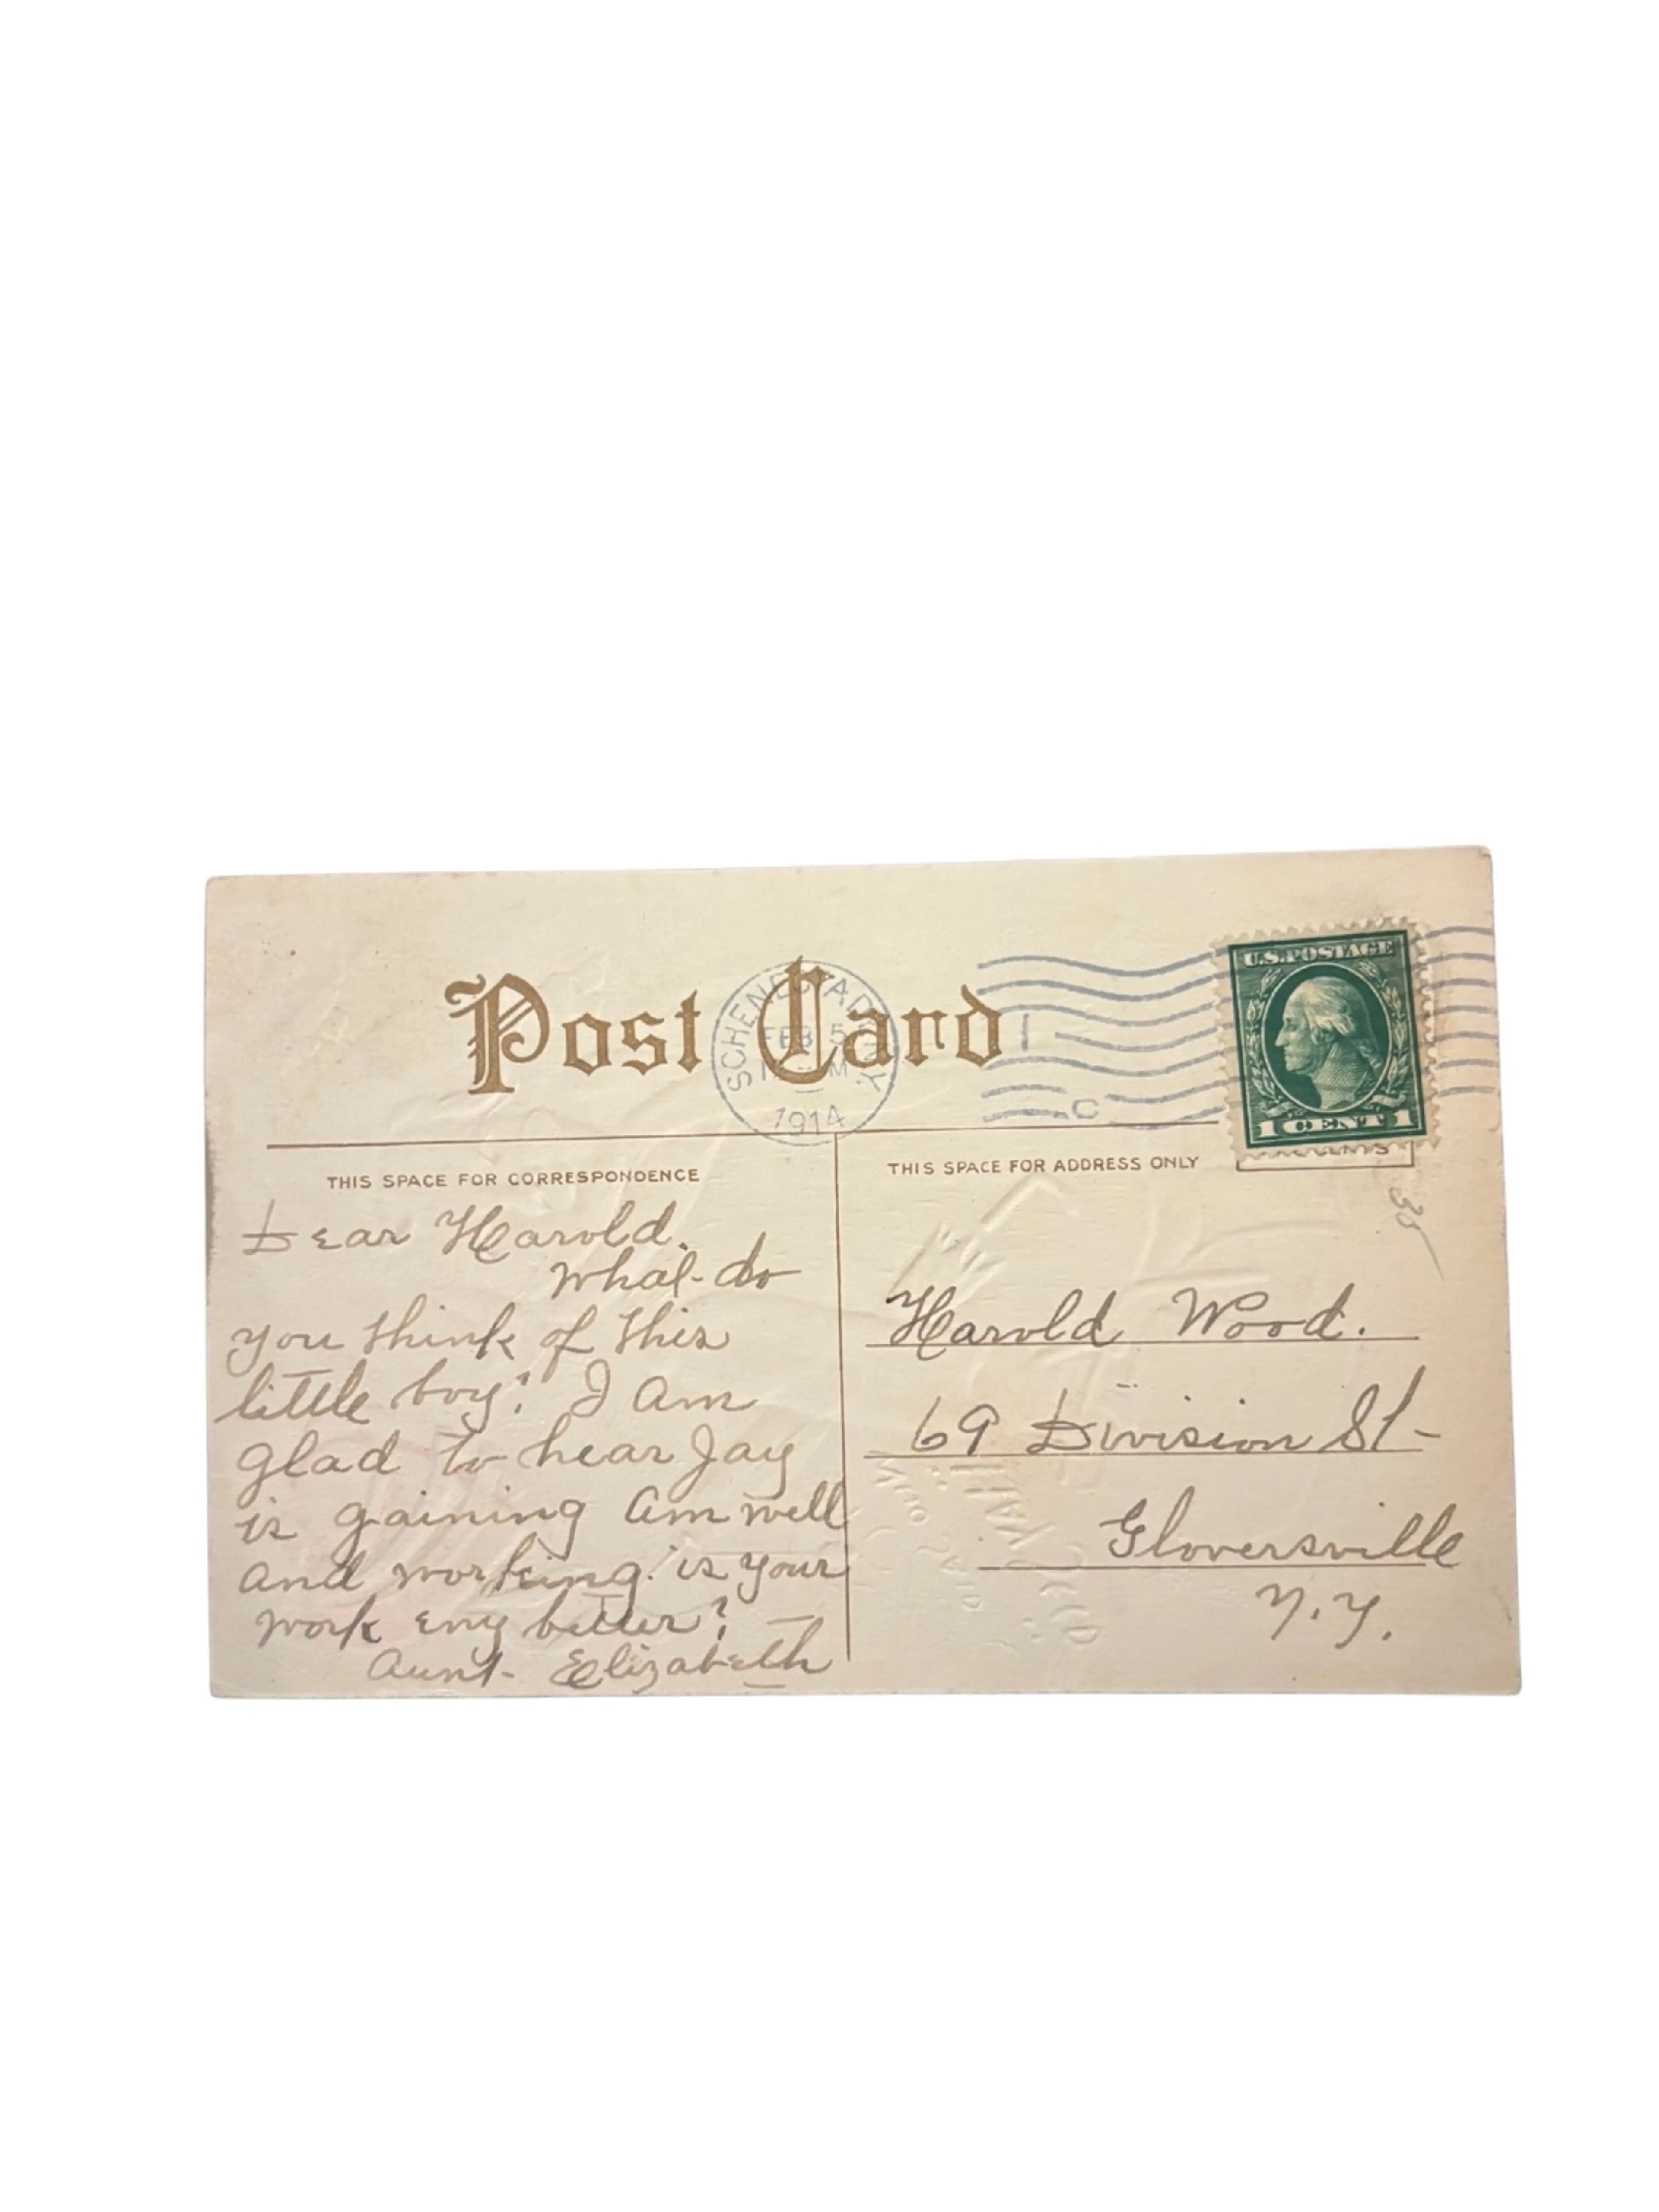 Post Card
SCHENECTADY N.Y.
FEB 5
M
1914
1
C
U.S. POSTAGE
1 CENT 1
THIS SPACE FOR CORRESPONDENCE
THIS SPACE FOR ADDRESS ONLY
Dear Harold.
what do
you think of this
little boy? I am
glad to hear Jay
is gaining am well
and working. is your
work eny better?
Aunt Elizabeth
35
Harold Wood.
69 Division St
Gloversville
N.Y.